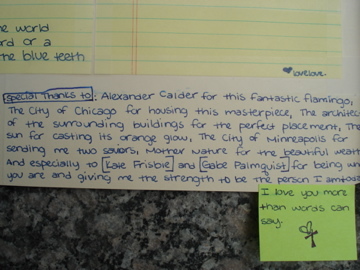 the world
ord or a
the blue teeth
lovelove
Special Thanks to: Alexander Calder for this fantastic flamingo,
The City of Chicago for housing this masterpiece, The architect
of the surrounding buildings for the perfect placement, The
sun for casting its orange glow, The City of Minneapolis for
sending me two saviors, Mother Nature for the beautiful weath
And especially to Kate Frisbie and Gabe Palmquist for being who
you are and giving me the strength to be the person I am toda
I love you more
than words can
say.